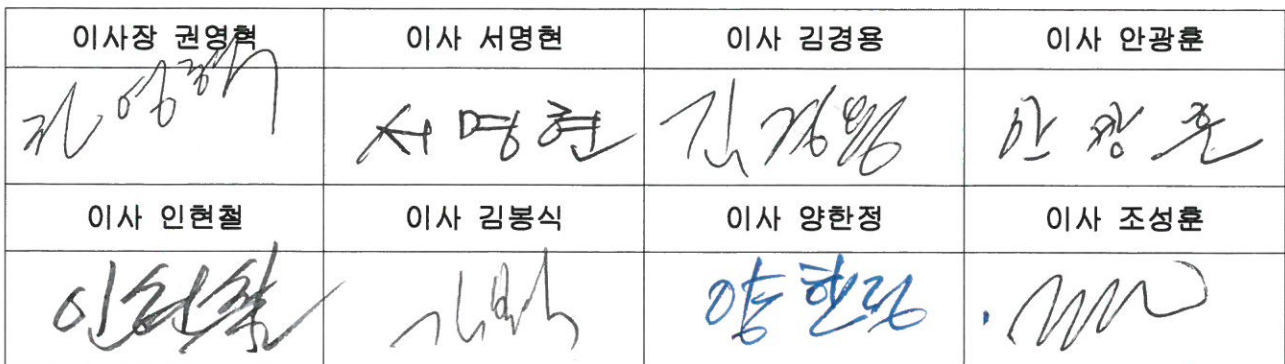 이사장 권영혁 이사 서명현 이사 김경용 이사 안광훈
권영혁 서명현 김경용 안광훈
이사 인현철 이사 김봉식 이사 양한정 이사 조성훈
인현철 김봉식 양한정